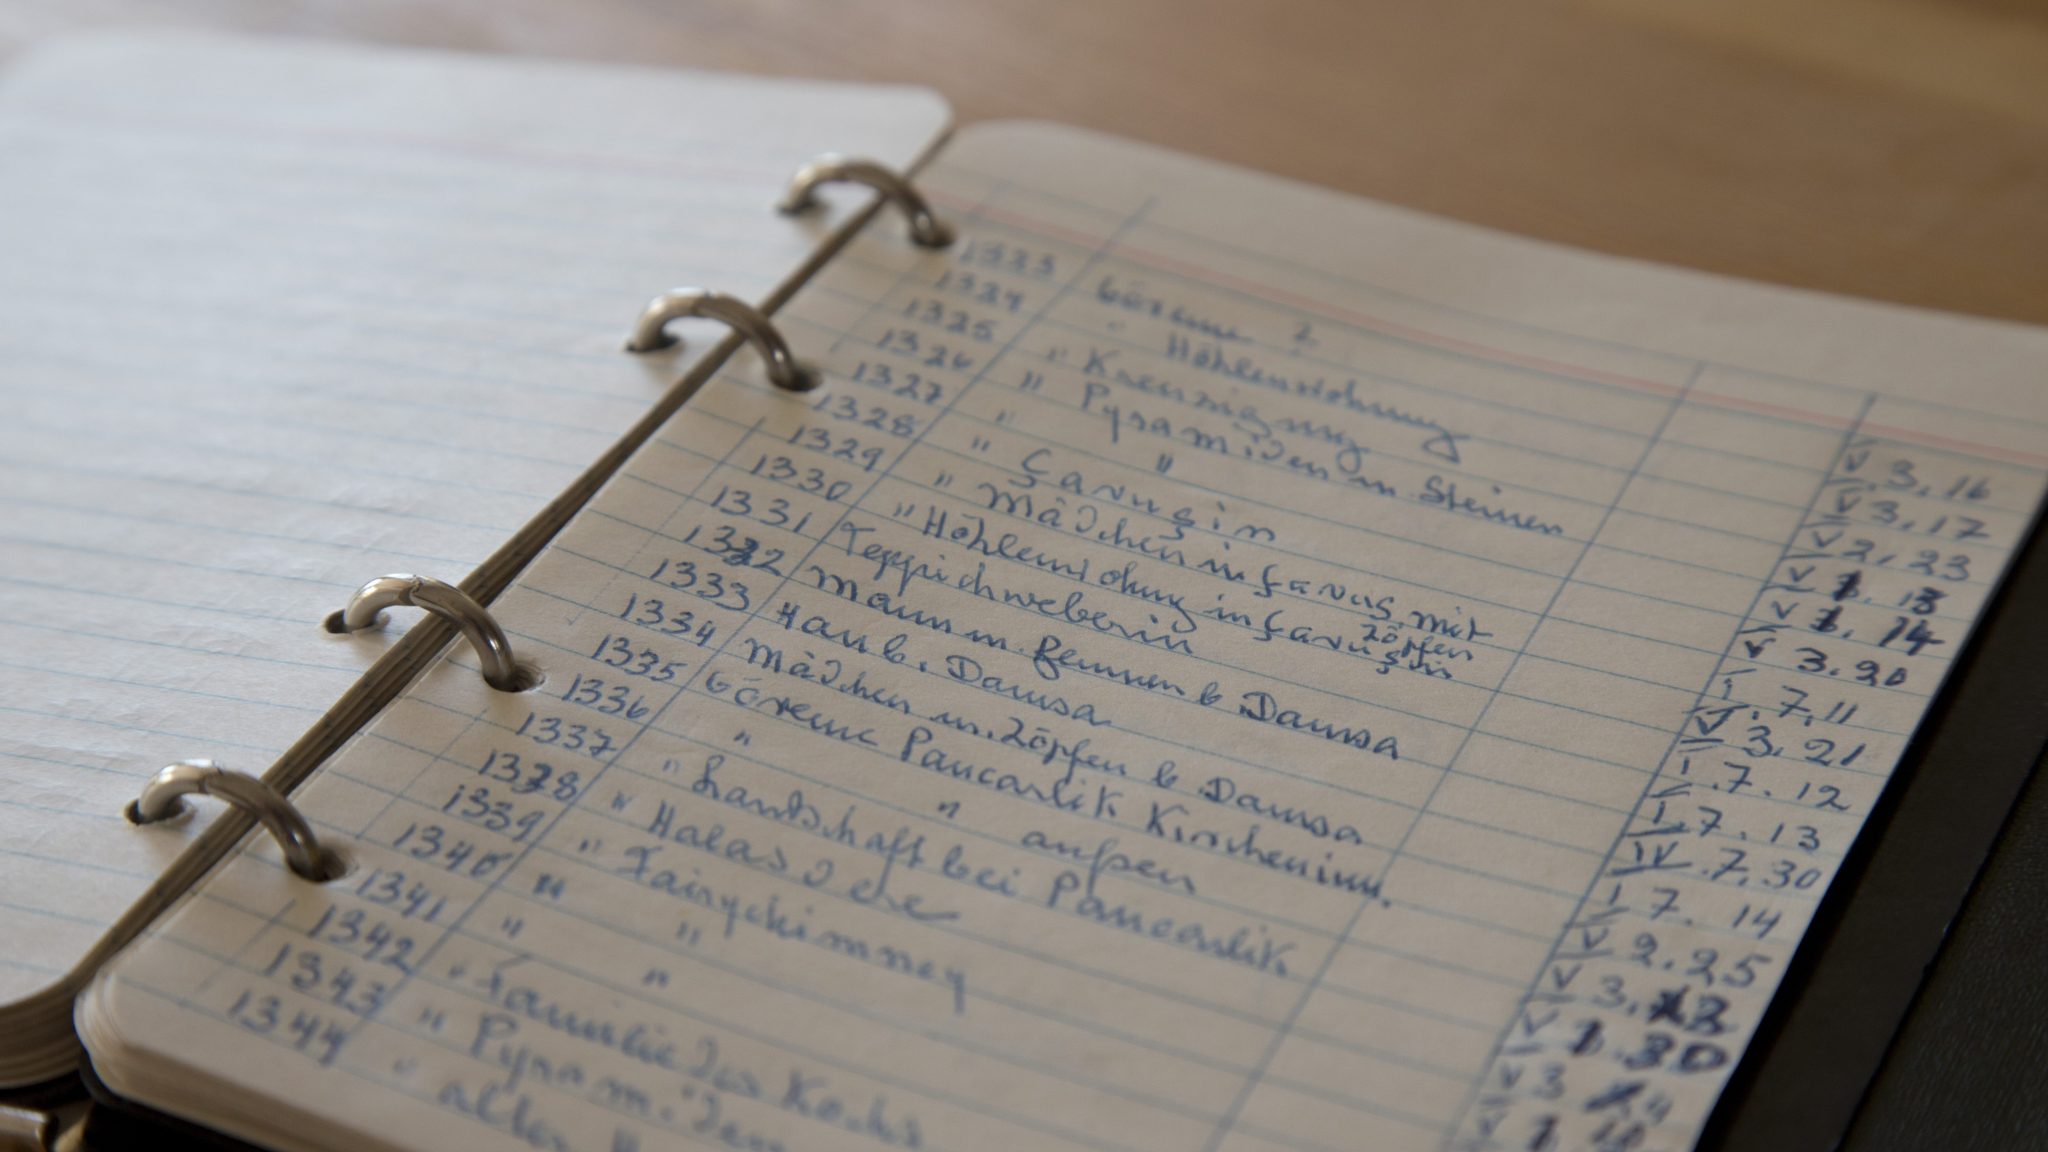 1323 Göreme 2 V 3,16
1324 " Höhlenwohnung V 3,17
1325 " Kreuzigung V 2,23
1326 " Pyramiden m. Steinen V 1.13
1327 " " V 1.14
1328 " Çavuşin V 3.20
1329 " Mädchen in Çavuş. mit Zöpfen I.7,11
1330 " Höhlenwohnung in Çavuşin V 3.21
1331 Teppichweberin I.7.12
1332 Mann m. b Damsa I.7.13
1333 b. Damsa IV.7.30
1334 Mädchen m. Zöpfen b Damsa I 7.14
1335 Göreme Pancarlik Kircheninn. V 2.25
1336 " " außen V 3.
1337 " Landschaft bei Pancarlik V 1.30
1338 " Halasdere V 3
1339 " Fairychimney V 1
1340 " "
1341 " "
1342 " Familie des Kochs
1343 " Pyramiden
1344 " alter